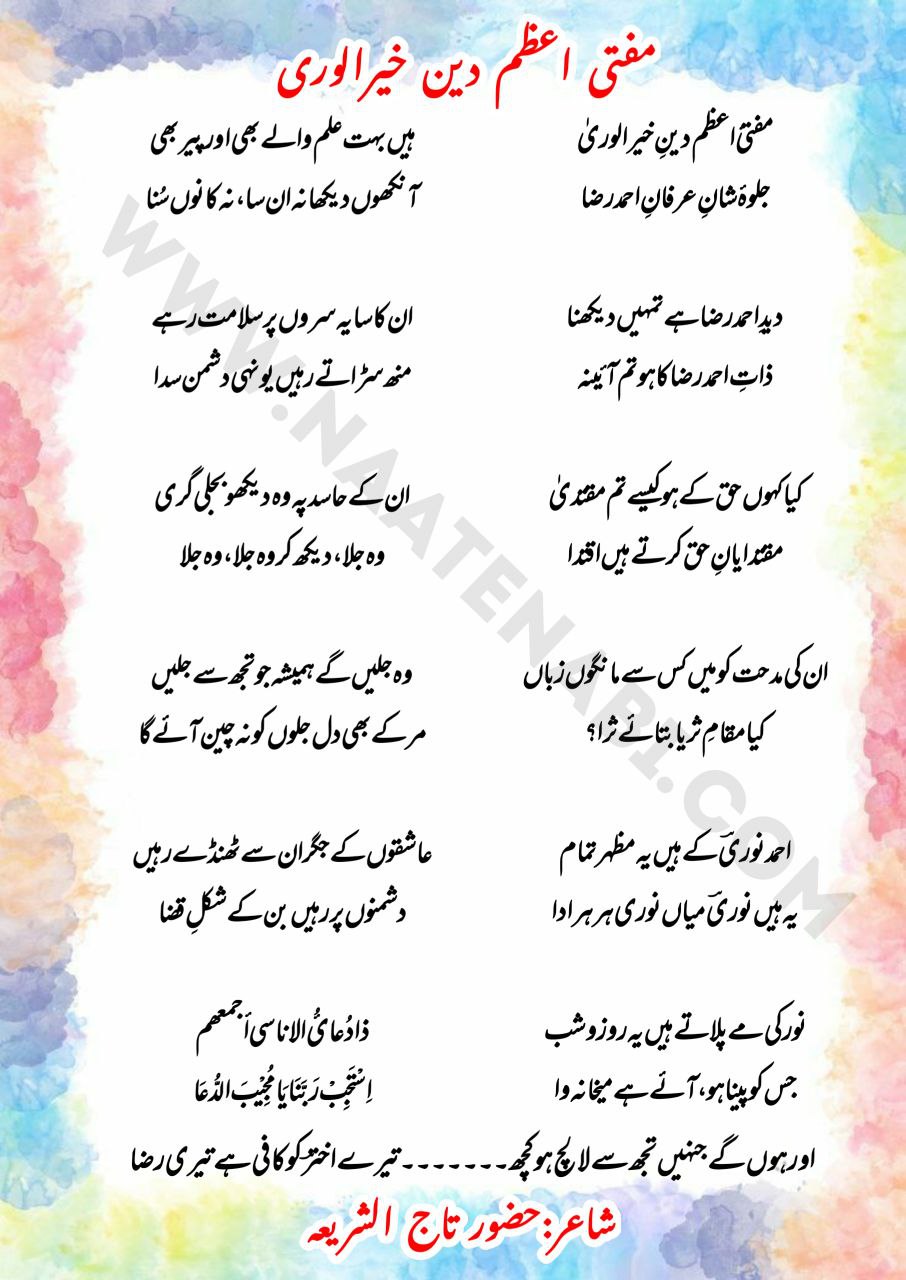 مفتی اعظم دین خیرالوری
مفتیٔ اعظم دینِ خیرالوریٰ
جلوۂ شانِ عرفانِ احمد رضا
ہیں بہت علم والے بھی اور پیر بھی
آنکھوں دیکھا نہ ان سا، نہ کانوں سُنا
دیدِ احمد رضا ہے تمہیں دیکھنا
ذاتِ احمد رضا کا ہو تم آئینہ
ان کا سایہ سروں پر سلامت رہے
منھ سڑاتے رہیں یونہی دشمن سدا
کیا کہوں حق کے ہو کیسے تم مقتدیٰ
مقتدایانِ حق کرتے ہیں اقتدا
ان کے حاسد پہ وہ دیکھو بجلی گری
وہ جلا، دیکھ کر وہ جلا، وہ جلا
ان کی مدحت کو میں کس سے مانگوں زباں
کیا مقامِ ثریا بتائے ثرا؟
وہ جلیں گے ہمیشہ جو تجھ سے جلیں
مر کے بھی دل جلوں کو نہ چین آئے گا
احمد نوریؔ کے ہیں یہ مظہر تمام
یہ ہیں نوریؔ میاں نوری ہر ہر ادا
عاشقوں کے جگر ان سے ٹھنڈے رہیں
دشمنوں پر رہیں بن کے شکلِ قضا
نور کی مے پلاتے ہیں یہ روز و شب
جس کو پینا ہو، آئے ہے میخانہ وا
ذا دُعائیُّ الاناسی أجمعهم
اِسْتَجِبْ رَبَّنَا يَا مُجِيْبَ الدُّعَا
اور ہوں گے جنہیں تجھ سے لالچ ہو کچھ - - - - - - - تیرے اخترؔ کو کافی ہے تیری رضا
شاعر: حضور تاج الشریعہ
WWW.NAATENABI.COM